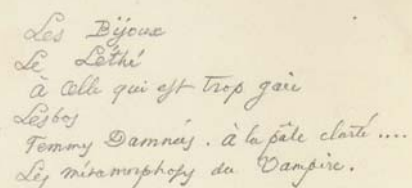 Les Bijoux
Le Léthé
à Celle qui est trop gaie
Lesbos
Femmes Damnées. à la pâle clarté....
Les métamorphoses du Vampire.